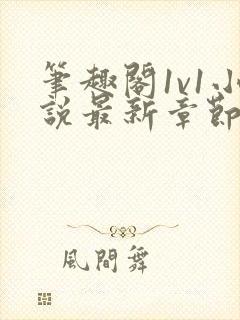 筆趣閣1v1小
說最新章節
風間舞